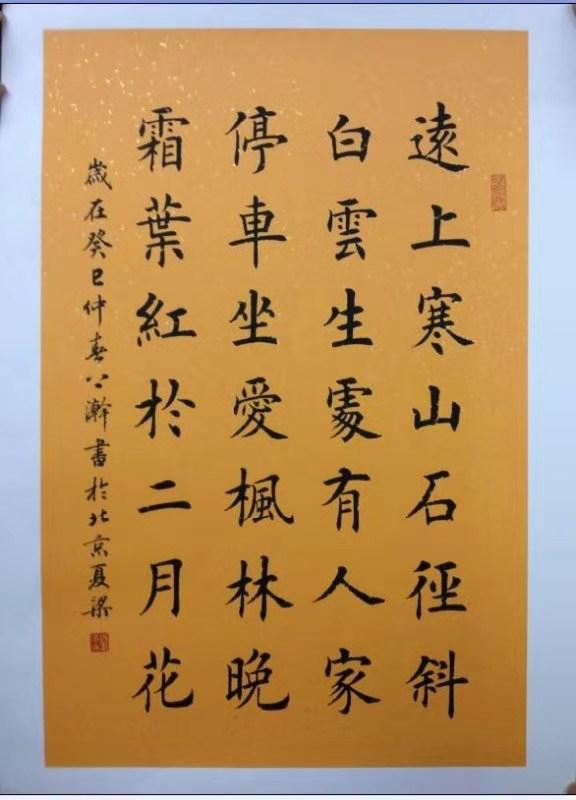 遠上寒山石徑斜
白雲生處有人家
停車坐愛楓林晚
霜葉紅於二月花
歲在癸巳仲春 瀚書於北京夏梁